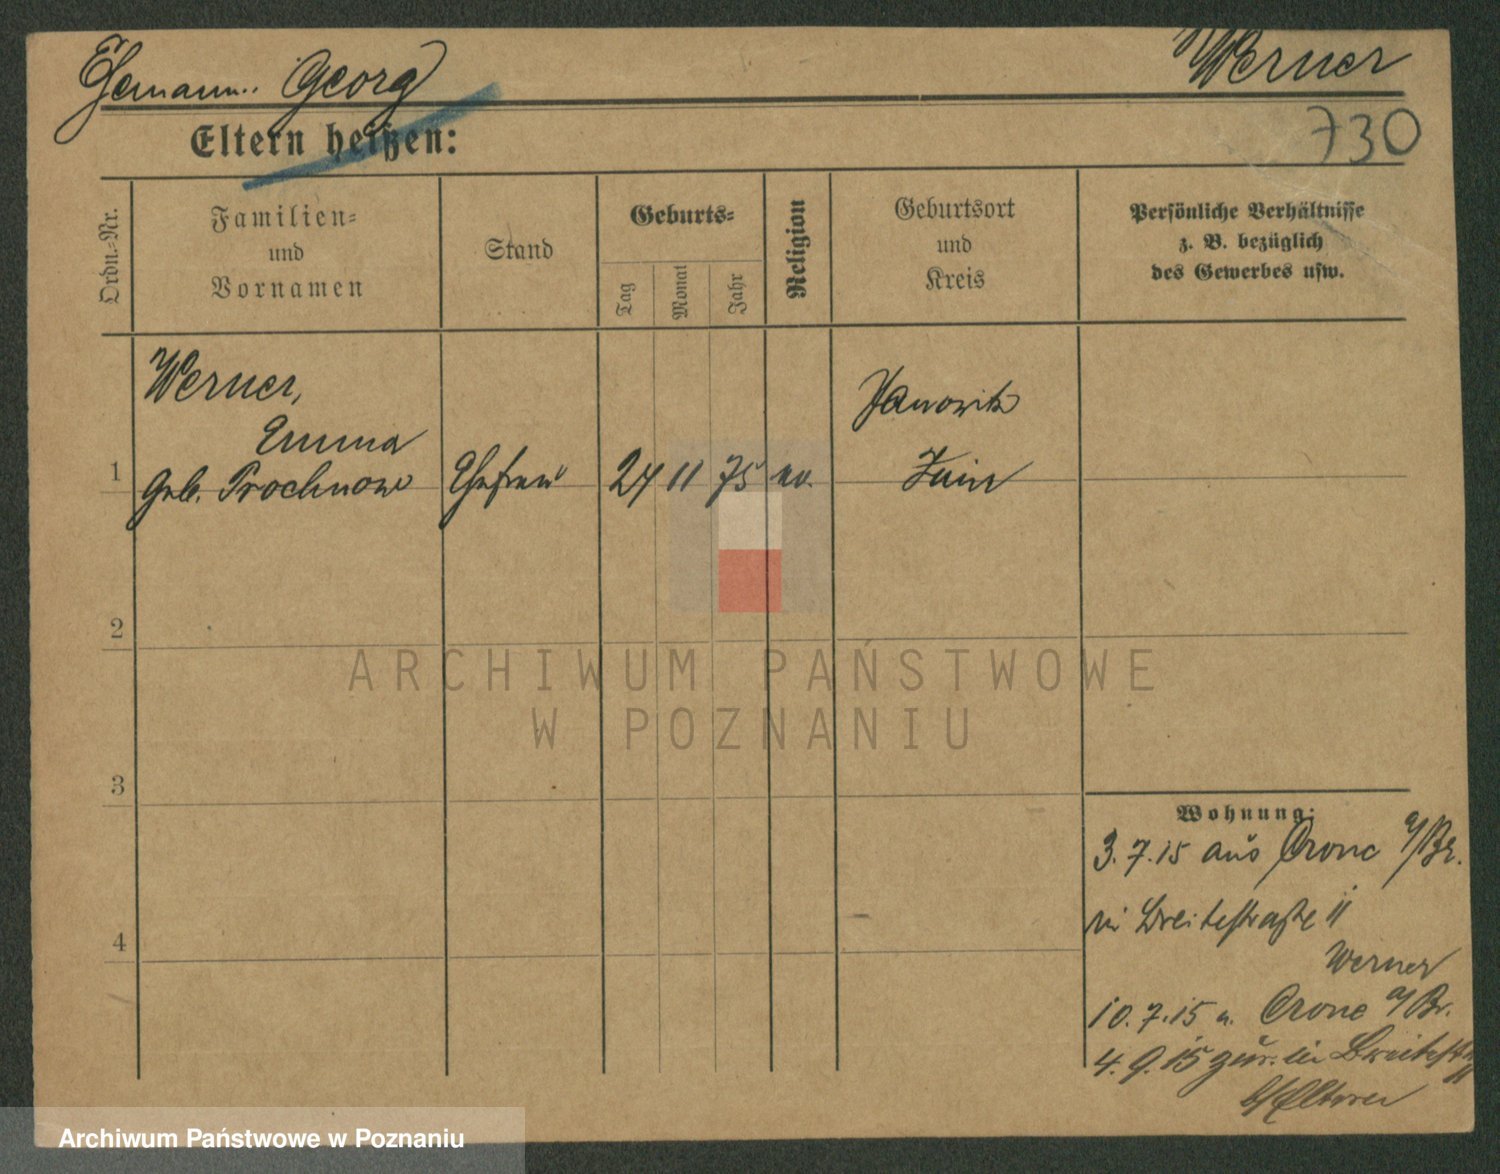 Ehemann: Georg
Werner
Eltern heißen:
730
Ordn.-Nr.
Familien-
und
Vornamen
Stand
Geburts-
Tag
Monat
Jahr
Religion
Geburtsort
und
Kreis
Persönliche Verhältnisse
z. B. bezüglich
des Gewerbes usw.
Werner,
Emma
1
geb. Prochnow
Ehefrau
24
11
75
ev.
Janowitz
Znin
2
3
4
Wohnung:
3.7.15 aus Crone a/Br.
in Breitestraße 11
Werner
10.7.15 n. Crone a/Br.
4.9.15 zur. in Breitestr
11
b/Eltern
ARCHIWUM PAŃSTWOWE
W POZNANIU
Archiwum Państwowe w Poznaniu